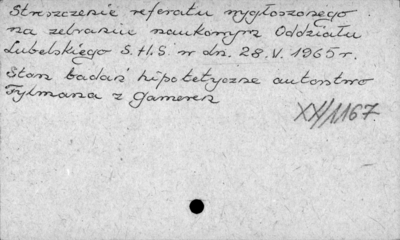 Streszczenie referatu wygłoszonego
na zebraniu naukowym Oddziału
Lubelskiego S.H.S. w dn. 28.V.1965 r.
Stan badań hipotetyczne autorstwo
Tylmana z Gameren
XX/1167.